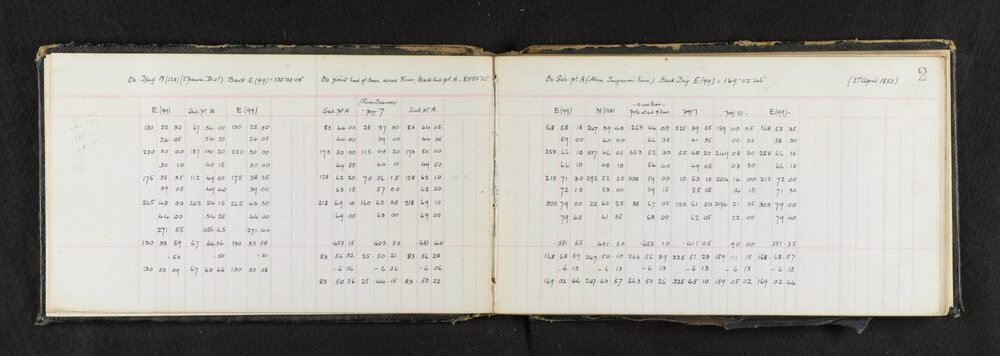 On Trig N (128) (Epawa Dist) Back E (99) = 130°33'09"
E (99) Sub. pt. A E (99)
130 22 30 67 34 00 130 22 30
24 05 34 50 24 05
220 30 00 157 40 20 220 30 00
30 10 40 15 30 00
175 38 35 112 49 00 175 38 35
39 05 49 40 39 00
265 43 30 202 54 15 265 43 30
44 00 54 25 44 00
271 55 356 45 271 40
130 33 59 67 44 36 130 33 58
- 50 - 50 - 50
130 33 09 67 43 46 130 33 08
On point line of Base across River Back Sub. pt. A =
(River Traverse)
Sub. pt. A Peg 7 Sub. pt. A.
83 44 00 25 37 30 83 44 05
44 30 39 00 44 35
173 50 00 115 43 20 173 50 00
49 55 44 10 49 50
128 62 20 70 56 15 128 62 10
63 15 57 00 62 50
218 69 10 160 62 35 218 69 10
69 05 63 00 69 00
452 15 402 50 451 40
83 56 32 25 50 21 83 56 28
- 6 06 - 6 06 - 6 06
83 50 26 25 44 15 83 50 22
On Sub. pt. A Back Trig E (99) = 169° 02' 46"
(2nd April 1883)
2
across River
E (99) N (128) Peg 7 Peg 10 E (99)
168 58 15 247 39 40 263 46 05 325 39 55 159 00 35 168 58 35
59 00 40 00 46 35 41 35 00 35 58 30
258 66 10 337 46 05 353 52 30 55 48 20 249 08 30 258 66 10
66 10 48 10 54 40 49 05 08 30 66 10
213 71 30 292 52 25 308 59 00 10 53 10 204 14 00 213 72 00
72 10 53 00 59 15 55 05 14 15 71 30
303 79 00 22 60 25 38 67 05 100 61 50 294 21 35 303 79 00
79 40 61 35 68 00 62 05 22 00 79 40
551 55 401 20 453 10 411 05 90 00 551 35
168 68 59 247 50 10 263 56 39 325 51 23 159 11 15 168 68 57
- 6 13 - 6 13 - 6 13 - 6 13 - 6 13 - 6 13
169 02 46 247 43 57 263 50 26 325 45 10 159 05 02 169 02 44